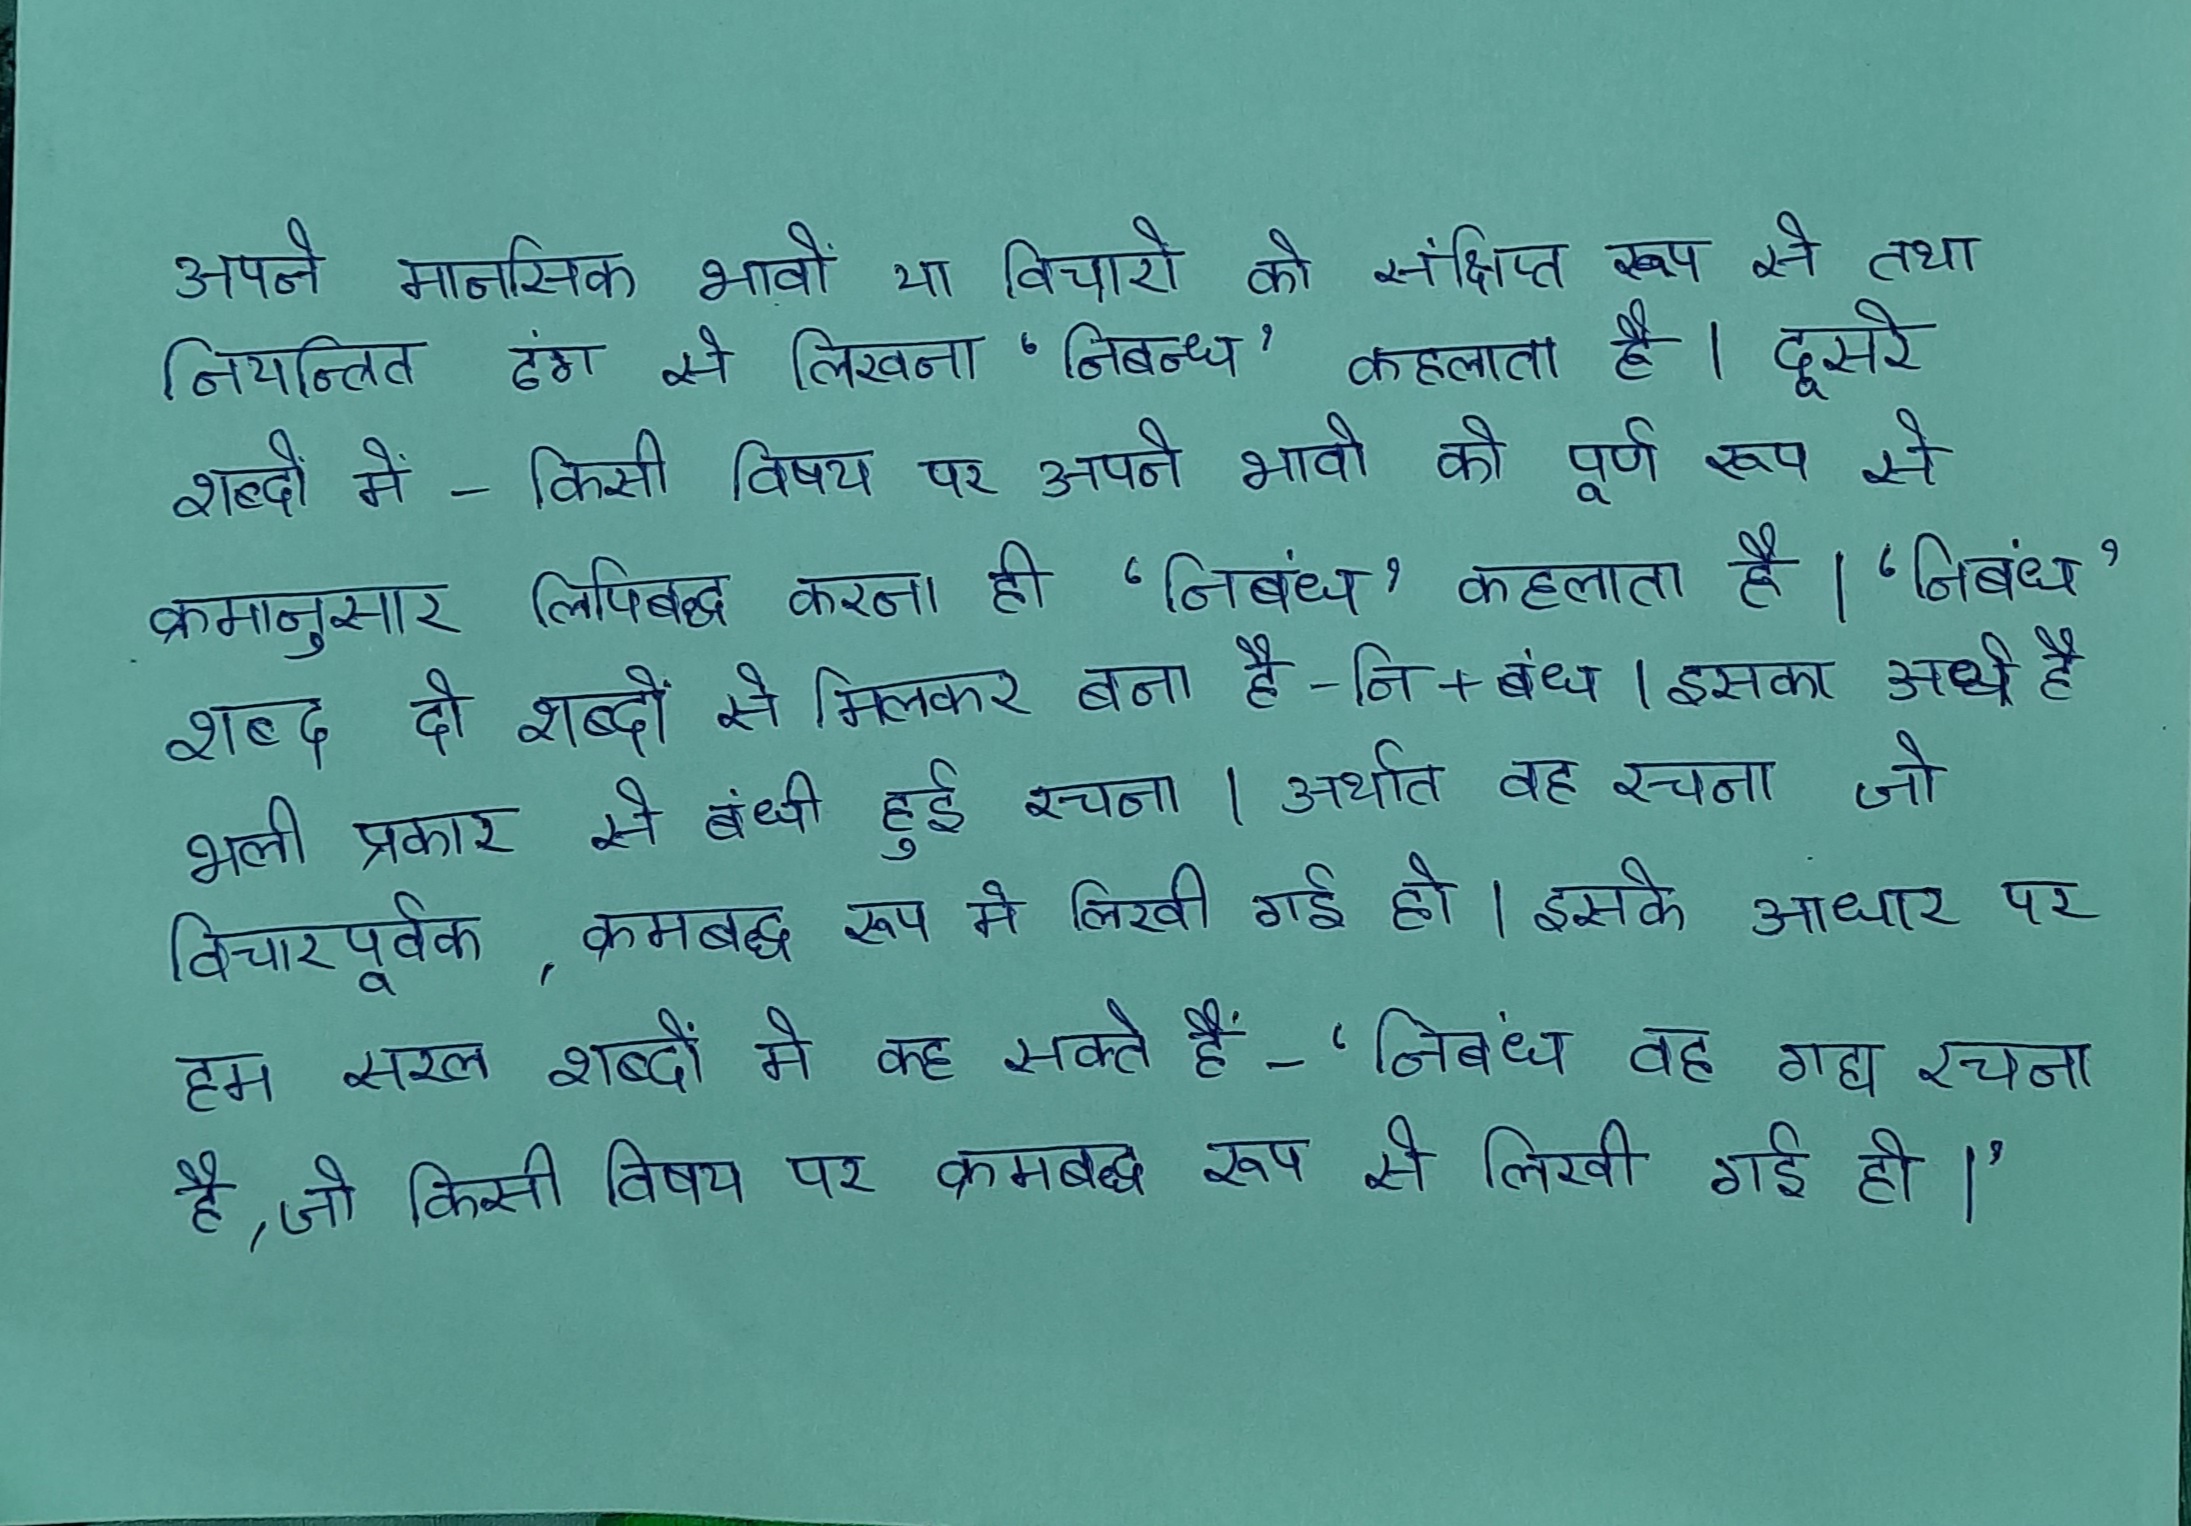 अपने मानसिक भावों या विचारो को संक्षिप्त रूप से तथा
नियन्त्रित ढंग से लिखना ‘निबन्ध’ कहलाता है । दूसरे
शब्दों में – किसी विषय पर अपने भावो को पूर्ण रूप से
क्रमानुसार लिपिबद्ध करना ही ‘निबंध’ कहलाता है । ‘निबंध’
शब्द दो शब्दों से मिलकर बना है – नि + बंध । इसका अर्थ है
भली प्रकार से बंधी हुई रचना । अर्थात वह रचना जो
विचारपूर्वक , क्रमबद्ध रूप मे लिखी गई हो । इसके आधार पर
हम सरल शब्दों मे कह सकते हैं – ‘निबंध वह गद्य रचना
है, जो किसी विषय पर क्रमबद्ध रूप से लिखी गई हो ।’